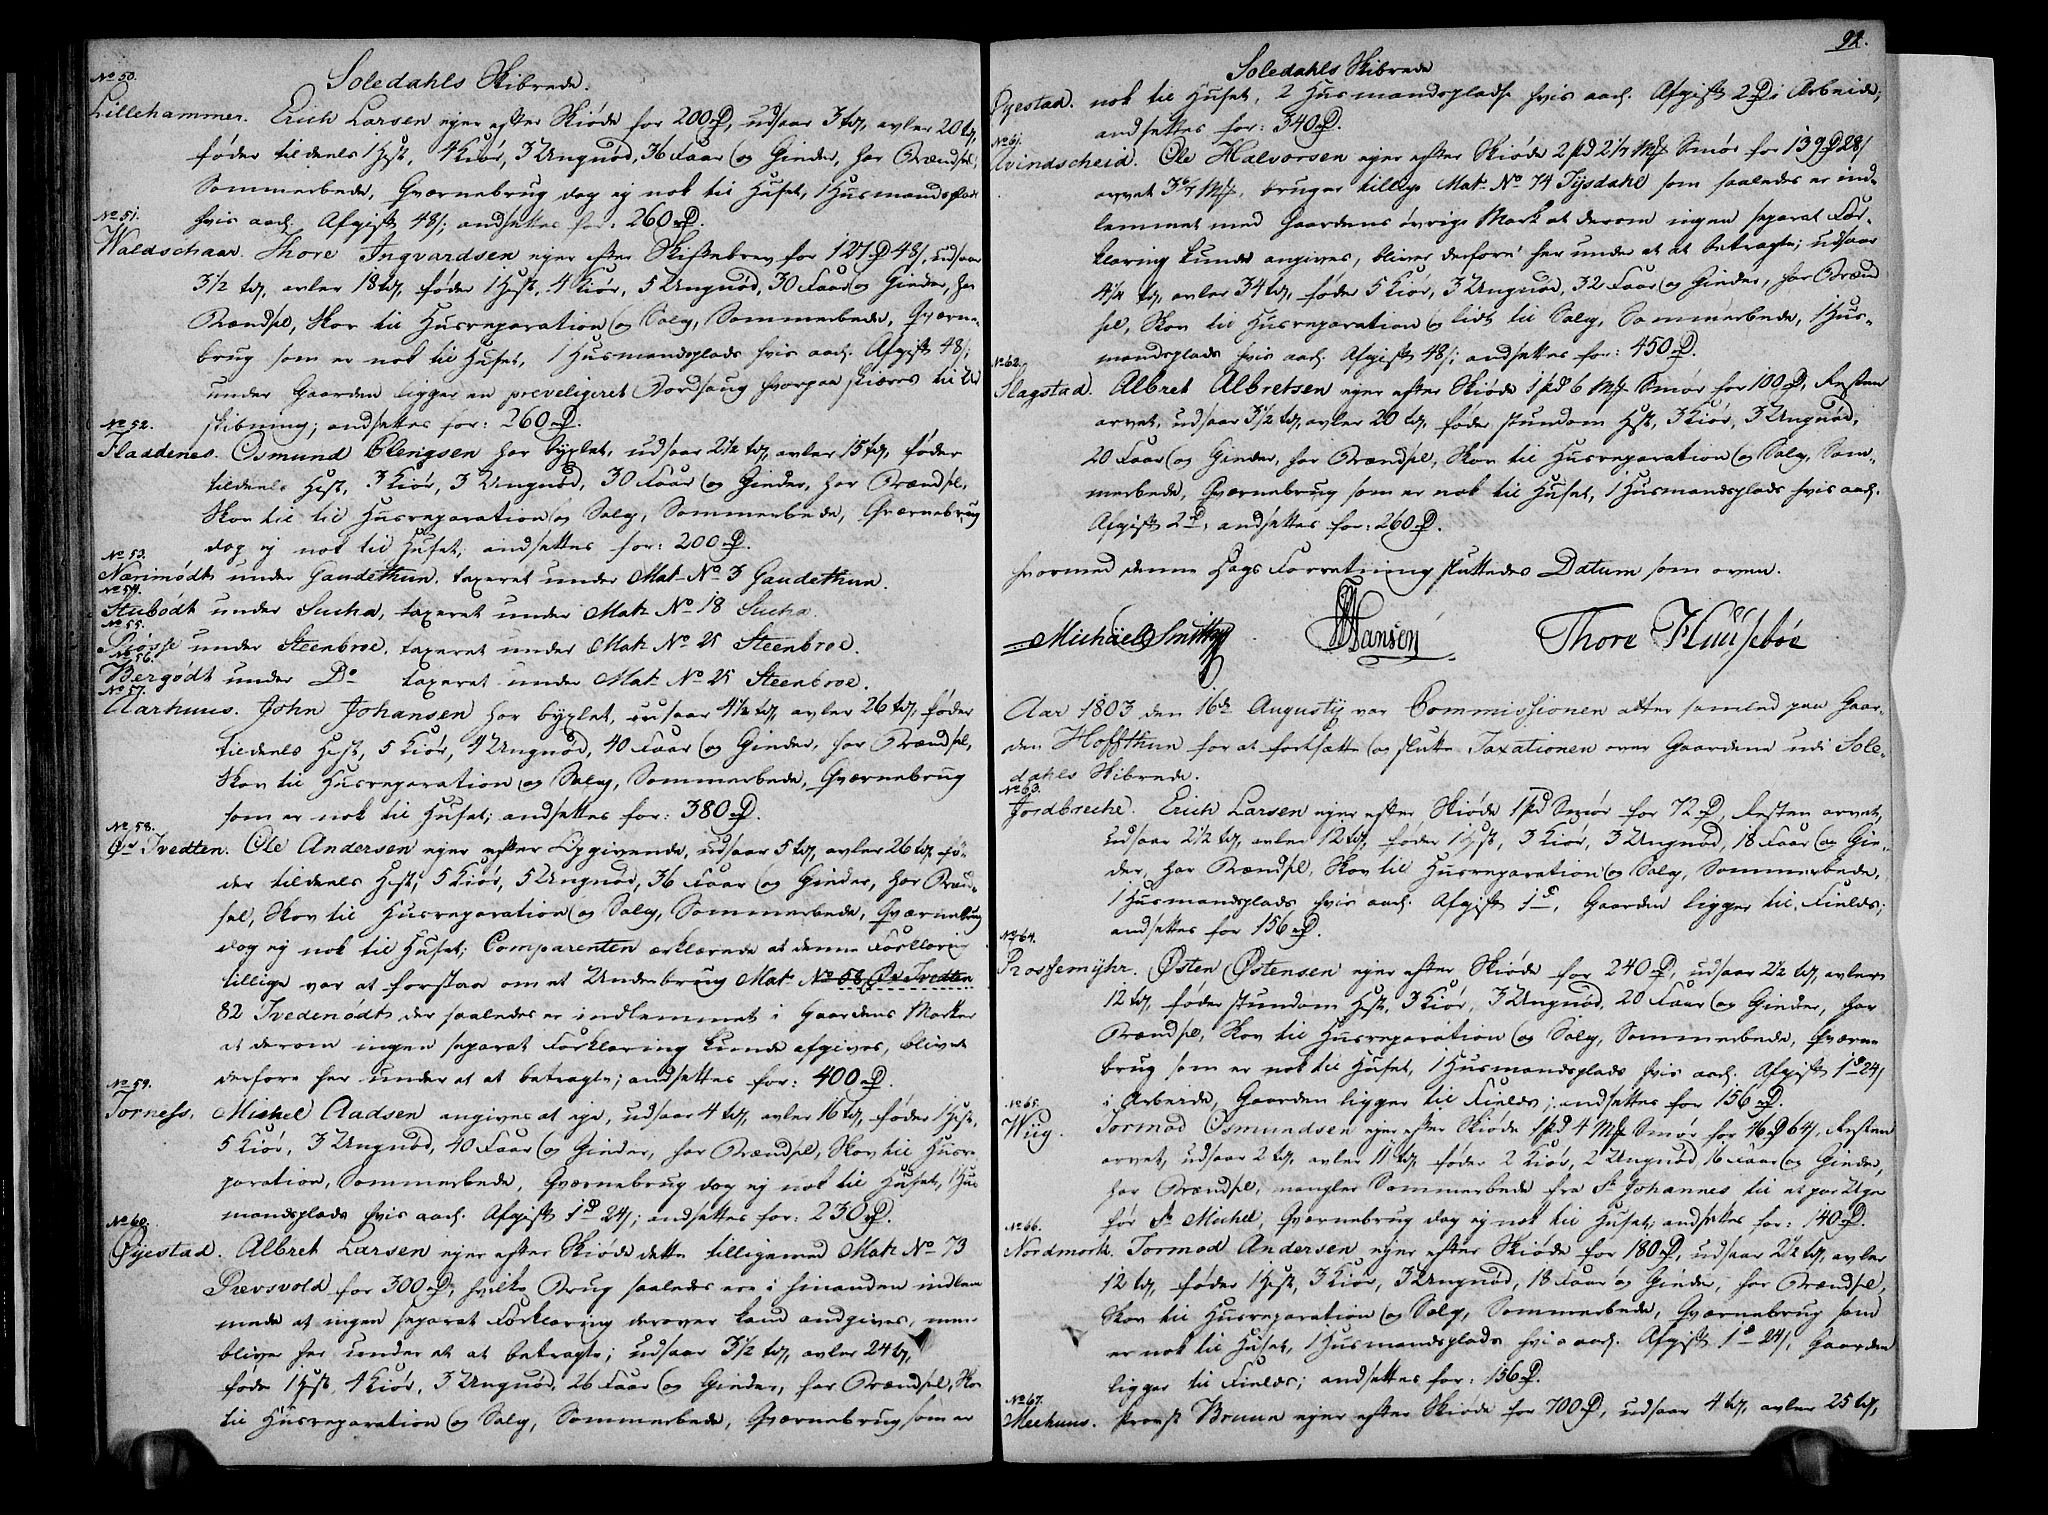 Soledahls Skibrede.
No 50.
Lillehammer. Erich Larsen ejer efter Skiøde for 200 rd, udsaar 3 tdr, avler 20 tdr,
føder tildeels 1 Hest, 4 Kiør, 3 Ungnød, 36 Faar og Gieder, har Brændsel,
Sommerbede, Qværnebrug dog ej nok til Huset, 1 Husmandsplads
hvis aarl. Afgift 48 s; andsættes for: 260 rd.
No 51.
Waldschaar. Thore Ingvardsen ejer efter Skiftebrev for 127 rd 48 s, udsaar
3 1/2 tdr, avler 18 tdr, føder 1 Hest, 4 Kiør, 5 Ungnød, 30 Faar og Gieder, har
Brændsel, Skov til Husreparation og Salg, Sommerbede, Qværne-
brug som er nok til Huset, 1 Husmandsplads hvis aarl. Afgift 48 s;
under Gaarden ligger en preveligeret Bordsaug hvorpaa skiæres til Ud
skibning; andsættes for: 260 rd.
No 52.
Fladdenes. Osmund Elengsen har byxlet, udsaar 2 1/2 tdr, avler 15 tdr, føder
tildeels Hest, 3 Kiør, 3 Ungnød, 30 Faar og Gieder, har Brændsel,
Skov til til Husreparation og Salg, Sommerbede, Qværnebrug
dog ej nok til Huset, andsættes for: 200 rd.
No 53.
Nærimødt under Gaudethun, taxeret under Mat. No 3 Gaudethun.
No 54.
Stubødt under Sucha, taxeret under Mat. No 18 Sucha.
No 55.
under Steenbroe, taxeret under Mat. No 25 Steenbroe.
No 56.
Bergødt under Do taxeret under Mat. No 25 Steenbroe.
No 57.
Aarhuus. John Johansen har byxlet, udsaar 4 1/2 tdr, avler 26 tdr, føder
tildeels Hest, 5 Kiør, 4 Ungnød, 40 Faar og Gieder, har Brændsel,
Skov til Husreparation og Salg, Sommerbede, Qværnebrug
som er nok til Huset; andsættes for: 380 rd.
No 58.
Øv Tvedten. Ole Andersen ejer efter Opgivende, udsaar 5 tdr, avler 26 tdr, fø-
der tildeels Hest, 5 Kiør, 5 Ungnød, 36 Faar og Gieder, har Brænd-
sel, Skov til Husreparation og Salg, Sommerbede, Qværnebrug
dog ej nok til Huset; Comparenten erklærede at denne Forklaring
tillige var at forstaa om et Underbrug Mat. No 58 Øv Tvedten
82 Tvedenødt der saaledes er indlemmet i Gaardens Marker
at derom ingen separat Forklaring kunde afgives, bliver
derfore her under et at betragte; andsættes for: 400 rd.
No 59.
Torness. Michel Aadsen angives at eje, udsaar 4 tdr, avler 16 tdr, føder 1 Hest,
5 Kiør, 3 Ungnød, 40 Faar og Gieder, har Brændsel, Skov til Husre-
paration, Sommerbede, Qværnebrug dog ej nok til Huset, 1 Hus
mandsplads hvis aarl. Afgift 1 rd 24 s; andsættes for: 230 rd.
No 60.
Øyestad. Albret Larsen ejer efter Skiøde dette tilligemed Mat. No 73
Prevsvold for 300 rd, hvilke Brug saaledes ere i hinanden indlem
mede at ingen separat Forklaring derover kand andgives, men
bliver her under et at betragte; udsaar 3 1/2 tdr, avler 24 tdr,
føder 1 Hest, 4 Kiør, 3 Ungnød, 26 Faar og Gieder, har Brændsel, Skov
til Husreparation og Salg, Sommerbede, Qværnebrug som er
92.
Soledahls Skibrede
Øyestad. nok til Huset, 2 Husmandspladse hvis aarl. Afgift 2 rd i Arbeide;
andsættes for: 340 rd.
No 61.
Avindscheid. Ole Halvorsen ejer efter Skiøde 2 pd 2 1/7 Mk Smør for 139 rd 28 s
arvet 3 6/7 Mk, bruger tillige Mat. No 74 Tysdahl som saaledes er ind-
lemmet med Gaardens øvrige Mark at derom ingen separat For-
klaring kunde angives, bliver derfore her under et at betragte; udsaar
4 1/4 tdr, avler 34 tdr, føder 5 Kiør, 3 Ungnød, 32 Faar og Gieder, har Brænd
sel, Skov til Husreparation og lidt til Salg, Sommerbede, 1 Hus-
mandsplads hvis aarl. Afgift 48 s; andsættes for: 450 rd.
No 62.
Slagstad. Albret Albretsen ejer efter Skiøde 1 pd 6 Mk Smør for 100 rd, Resten
arvet, udsaar 3 1/2 tdr, avler 20 tdr, føder stundom Hest, 3 Kiør, 3 Ungnød,
20 Faar og Gieder, har Brændsel, Skov til Husreparation og Salg, Som-
merbede, Qværnebrug som er nok til Huset, 1 Husmandsplads hvis aarl.
Afgift 2 rd; andsættes for: 260 rd.
hvormed denne Dags Forretning sluttedes Datum som oven.
Michäel Smith Hansen Thore Huusebøe
Aar 1803 den 16de Augustij var Commissionen atter samled paa Gaar-
den Hoffthun for at fortsætte og slutte Taxationen over Gaardene udi Sole-
dahls Skibrede.
No 63.
Jordbreche. Erich Larsen ejer efter Skiøde 1 pd Smør for 72 rd, Resten arvet,
udsaar 2 1/2 tdr, avler 12 tdr, føder 1 Hest, 3 Kiør, 3 Ungnød, 18 Faar og Gie-
der, har Brændsel, Skov til Husreparation og Salg, Sommerbede,
1 Husmandsplads hvis aarl. Afgift 1 rd, Gaarden ligger til Fields;
andsættes for 156 rd.
No 64.
Prossemyhr. Østen Østensen ejer efter Skiøde for 240 rd, udsaar 2 1/2 tdr, avler
12 tdr, føder stundom Hest, 3 Kiør, 3 Ungnød, 20 Faar og Gieder, har
Brændsel, Skov til Husreparation og Salg, Sommerbede, Qværne
brug som er nok til Huset, 1 Husmandsplads hvis aarl. Afgift 1 rd 24 s
i Arbeide, Gaarden ligger til Fields; andsættes for 156 rd.
No 65.
Wüg. Tormod Osmundsen ejer efter Skiøde 1 pd 4 Mk Smør for 46 rd 64 s, Resten
arvet, udsaar 2 tdr, avler 11 tdr, føder 2 Kiør, 2 Ungnød, 16 Faar og Gieder,
har Brændsel, mangler Sommerbede fra St Johannes til et par Uger
før St Michel, Qværnebrug dog ej nok til Huset; andsættes for: 140 rd.
No 66.
Nordmork. Tormod Andersen ejer efter Skiøde for 180 rd, udsaar 2 1/2 tdr, avler
12 tdr, føder 1 Hest, 3 Kiør, 3 Ungnød, 18 Faar og Gieder, har Brændsel,
Skov til Husreparation og Salg, Sommerbede, Qværnebrug som
er nok til Huset, 1 Husmandsplads hvis aarl. Afgift 1 rd 24 s, Gaarden
ligger til Fields; andsættes for: 156 rd.
No 67.
Meehuus. Provst Bruun ejer efter Skiøde for 700 rd, udsaar 4 tdr, avler 25 tdr,